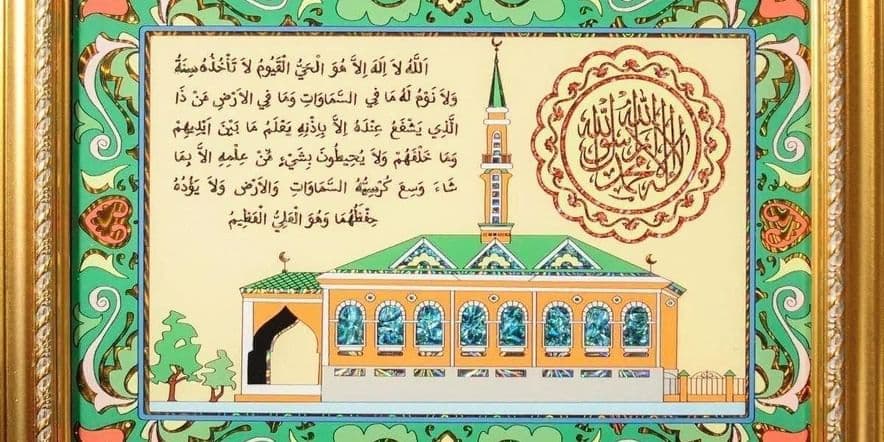 اَللّٰهُ لاَ اِلٰهَ اِلاَّ هُوَ الْحَيُّ الْقَيُّومُ لاَ تَأْخُذُهُ سِنَةٌ
وَلاَ نَوْمٌ لَهُ مَا فِي السَّمَاوَاتِ وَمَا فِي الْاَرْضِ مَنْ ذَا
الَّذِي يَشْفَعُ عِنْدَهُ اِلاَّ بِاِذْنِهِ يَعْلَمُ مَا بَيْنَ اَيْدِيهِمْ
وَمَا خَلْفَهُمْ وَلاَ يُحِيطُونَ بِشَيْءٍ مِّنْ عِلْمِهِ اِلاَّ بِمَا
شَاءَ وَسِعَ كُرْسِيُّهُ السَّمَاوَاتِ وَالْاَرْضَ وَلاَ يَؤُدُهُ
حِفْظُهُمَا وَهُوَ الْعَلِيُّ الْعَظِيمُ
لا إله إلا الله محمد رسول الله